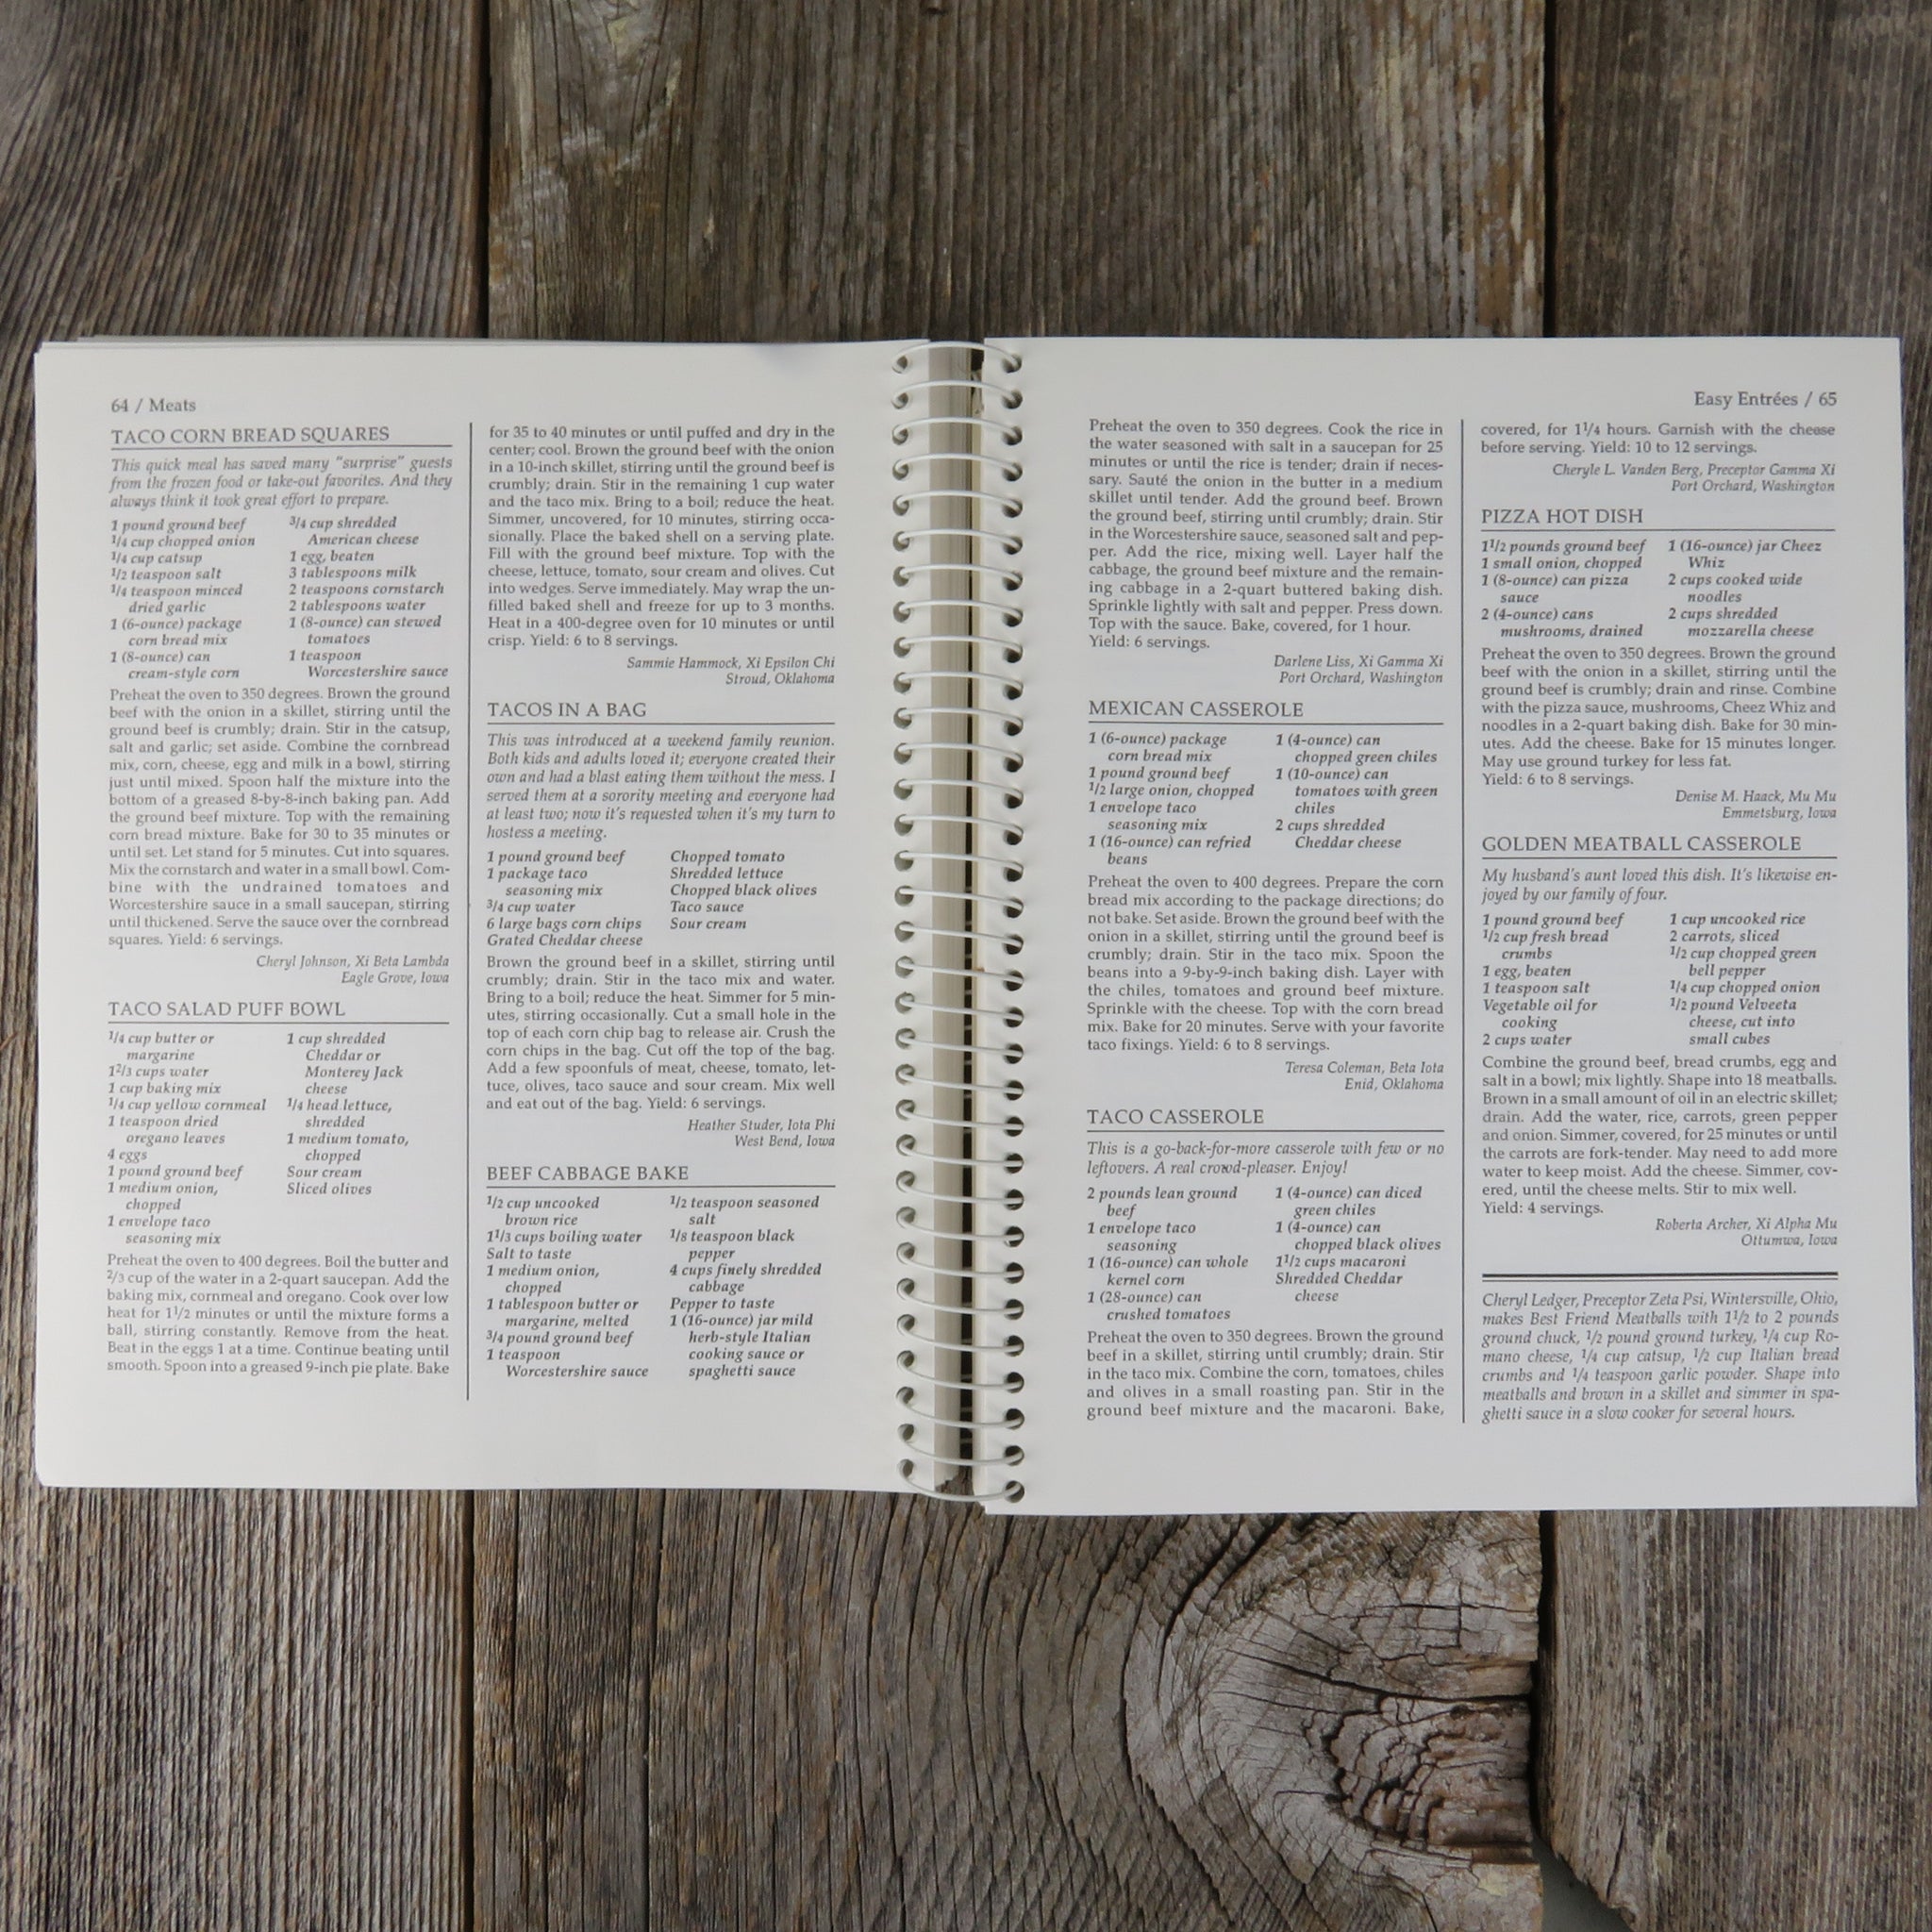 64 / Meats
TACO CORN BREAD SQUARES
This quick meal has saved many "surprise" guests
from the frozen food or take-out favorites. And they
always think it took great effort to prepare.
1 pound ground beef
1/4 cup chopped onion
1/4 cup catsup
1/2 teaspoon salt
1/4 teaspoon minced
dried garlic
1 (6-ounce) package
corn bread mix
1 (8-ounce) can
cream-style corn
3/4 cup shredded
American cheese
1 egg, beaten
3 tablespoons milk
2 teaspoons cornstarch
2 tablespoons water
1 (8-ounce) can stewed
tomatoes
1 teaspoon
Worcestershire sauce
Preheat the oven to 350 degrees. Brown the ground
beef with the onion in a skillet, stirring until the
ground beef is crumbly; drain. Stir in the catsup,
salt and garlic; set aside. Combine the cornbread
mix, corn, cheese, egg and milk in a bowl, stirring
just until mixed. Spoon half the mixture into the
bottom of a greased 8-by-8-inch baking pan. Add
the ground beef mixture. Top with the remaining
corn bread mixture. Bake for 30 to 35 minutes or
until set. Let stand for 5 minutes. Cut into squares.
Mix the cornstarch and water in a small bowl. Com-
bine with the undrained tomatoes and
Worcestershire sauce in a small saucepan, stirring
until thickened. Serve the sauce over the cornbread
squares. Yield: 6 servings.
Cheryl Johnson, Xi Beta Lambda
Eagle Grove, Iowa
TACO SALAD PUFF BOWL
1/4 cup butter or
margarine
1 2/3 cups water
1 cup baking mix
1/4 cup yellow cornmeal
1 teaspoon dried
oregano leaves
4 eggs
1 pound ground beef
1 medium onion,
chopped
1 envelope taco
seasoning mix
1 cup shredded
Cheddar or
Monterey Jack
cheese
1/4 head lettuce,
shredded
1 medium tomato,
chopped
Sour cream
Sliced olives
Preheat the oven to 400 degrees. Boil the butter and
2/3 cup of the water in a 2-quart saucepan. Add the
baking mix, cornmeal and oregano. Cook over low
heat for 1 1/2 minutes or until the mixture forms a
ball, stirring constantly. Remove from the heat.
Beat in the eggs 1 at a time. Continue beating until
smooth. Spoon into a greased 9-inch pie plate. Bake
for 35 to 40 minutes or until puffed and dry in the
center; cool. Brown the ground beef with the onion
in a 10-inch skillet, stirring until the ground beef is
crumbly; drain. Stir in the remaining 1 cup water
and the taco mix. Bring to a boil; reduce the heat.
Simmer, uncovered, for 10 minutes, stirring occa-
sionally. Place the baked shell on a serving plate.
Fill with the ground beef mixture. Top with the
cheese, lettuce, tomato, sour cream and olives. Cut
into wedges. Serve immediately. May wrap the un-
filled baked shell and freeze for up to 3 months.
Heat in a 400-degree oven for 10 minutes or until
crisp. Yield: 6 to 8 servings.
Sammie Hammock, Xi Epsilon Chi
Stroud, Oklahoma
TACOS IN A BAG
This was introduced at a weekend family reunion.
Both kids and adults loved it; everyone created their
own and had a blast eating them without the mess. I
served them at a sorority meeting and everyone had
at least two; now it's requested when it's my turn to
hostess a meeting.
1 pound ground beef
1 package taco
seasoning mix
3/4 cup water
6 large bags corn chips
Grated Cheddar cheese
Chopped tomato
Shredded lettuce
Chopped black olives
Taco sauce
Sour cream
Brown the ground beef in a skillet, stirring until
crumbly; drain. Stir in the taco mix and water.
Bring to a boil; reduce the heat. Simmer for 5 min-
utes, stirring occasionally. Cut a small hole in the
top of each corn chip bag to release air. Crush the
corn chips in the bag. Cut off the top of the bag.
Add a few spoonfuls of meat, cheese, tomato, let-
tuce, olives, taco sauce and sour cream. Mix well
and eat out of the bag. Yield: 6 servings.
Heather Studer, Iota Phi
West Bend, Iowa
BEEF CABBAGE BAKE
1/2 cup uncooked
brown rice
1 1/3 cups boiling water
Salt to taste
1 medium onion,
chopped
1 tablespoon butter or
margarine, melted
3/4 pound ground beef
1 teaspoon
Worcestershire sauce
1/2 teaspoon seasoned
salt
1/8 teaspoon black
pepper
4 cups finely shredded
cabbage
Pepper to taste
1 (16-ounce) jar mild
herb-style Italian
cooking sauce or
spaghetti sauce
Easy Entrées / 65
Preheat the oven to 350 degrees. Cook the rice in
the water seasoned with salt in a saucepan for 25
minutes or until the rice is tender; drain if neces-
sary. Sauté the onion in the butter in a medium
skillet until tender. Add the ground beef. Brown
the ground beef, stirring until crumbly; drain. Stir
in the Worcestershire sauce, seasoned salt and pep-
per. Add the rice, mixing well. Layer half the
cabbage, the ground beef mixture and the remain-
ing cabbage in a 2-quart buttered baking dish.
Sprinkle lightly with salt and pepper. Press down.
Top with the sauce. Bake, covered, for 1 hour.
Yield: 6 servings.
Darlene Liss, Xi Gamma Xi
Port Orchard, Washington
MEXICAN CASSEROLE
1 (6-ounce) package
corn bread mix
1 pound ground beef
1/2 large onion, chopped
1 envelope taco
seasoning mix
1 (16-ounce) can refried
beans
1 (4-ounce) can
chopped green chiles
1 (10-ounce) can
tomatoes with green
chiles
2 cups shredded
Cheddar cheese
Preheat the oven to 400 degrees. Prepare the corn
bread mix according to the package directions; do
not bake. Set aside. Brown the ground beef with the
onion in a skillet, stirring until the ground beef is
crumbly; drain. Stir in the taco mix. Spoon the
beans into a 9-by-9-inch baking dish. Layer with
the chiles, tomatoes and ground beef mixture.
Sprinkle with the cheese. Top with the corn bread
mix. Bake for 20 minutes. Serve with your favorite
taco fixings. Yield: 6 to 8 servings.
Teresa Coleman, Beta Iota
Enid, Oklahoma
TACO CASSEROLE
This is a go-back-for-more casserole with few or no
leftovers. A real crowd-pleaser. Enjoy!
2 pounds lean ground
beef
1 envelope taco
seasoning
1 (16-ounce) can whole
kernel corn
1 (28-ounce) can
crushed tomatoes
1 (4-ounce) can diced
green chiles
1 (4-ounce) can
chopped black olives
1 1/2 cups macaroni
Shredded Cheddar
cheese
Preheat the oven to 350 degrees. Brown the ground
beef in a skillet, stirring until crumbly; drain. Stir
in the taco mix. Combine the corn, tomatoes, chiles
and olives in a small roasting pan. Stir in the
ground beef mixture and the macaroni. Bake,
covered, for 1 1/4 hours. Garnish with the cheese
before serving. Yield: 10 to 12 servings.
Cheryle L. Vanden Berg, Preceptor Gamma Xi
Port Orchard, Washington
PIZZA HOT DISH
1 1/2 pounds ground beef
1 small onion, chopped
1 (8-ounce) can pizza
sauce
2 (4-ounce) cans
mushrooms, drained
1 (16-ounce) jar Cheez
Whiz
2 cups cooked wide
noodles
2 cups shredded
mozzarella cheese
Preheat the oven to 350 degrees. Brown the ground
beef with the onion in a skillet, stirring until the
ground beef is crumbly; drain and rinse. Combine
with the pizza sauce, mushrooms, Cheez Whiz and
noodles in a 2-quart baking dish. Bake for 30 min-
utes. Add the cheese. Bake for 15 minutes longer.
May use ground turkey for less fat.
Yield: 6 to 8 servings.
Denise M. Haack, Mu Mu
Emmetsburg, Iowa
GOLDEN MEATBALL CASSEROLE
My husband's aunt loved this dish. It's likewise en-
joyed by our family of four.
1 pound ground beef
1/2 cup fresh bread
crumbs
1 egg, beaten
1 teaspoon salt
Vegetable oil for
cooking
2 cups water
1 cup uncooked rice
2 carrots, sliced
1/2 cup chopped green
bell pepper
1/4 cup chopped onion
1/2 pound Velveeta
cheese, cut into
small cubes
Combine the ground beef, bread crumbs, egg and
salt in a bowl; mix lightly. Shape into 18 meatballs.
Brown in a small amount of oil in an electric skillet;
drain. Add the water, rice, carrots, green pepper
and onion. Simmer, covered, for 25 minutes or until
the carrots are fork-tender. May need to add more
water to keep moist. Add the cheese. Simmer, cov-
ered, until the cheese melts. Stir to mix well.
Yield: 4 servings.
Roberta Archer, Xi Alpha Mu
Ottumwa, Iowa
Cheryl Ledger, Preceptor Zeta Psi, Wintersville, Ohio,
makes Best Friend Meatballs with 1 1/2 to 2 pounds
ground chuck, 1/2 pound ground turkey, 1/4 cup Ro-
mano cheese, 1/4 cup catsup, 1/2 cup Italian bread
crumbs and 1/4 teaspoon garlic powder. Shape into
meatballs and brown in a skillet and simmer in spa-
ghetti sauce in a slow cooker for several hours.